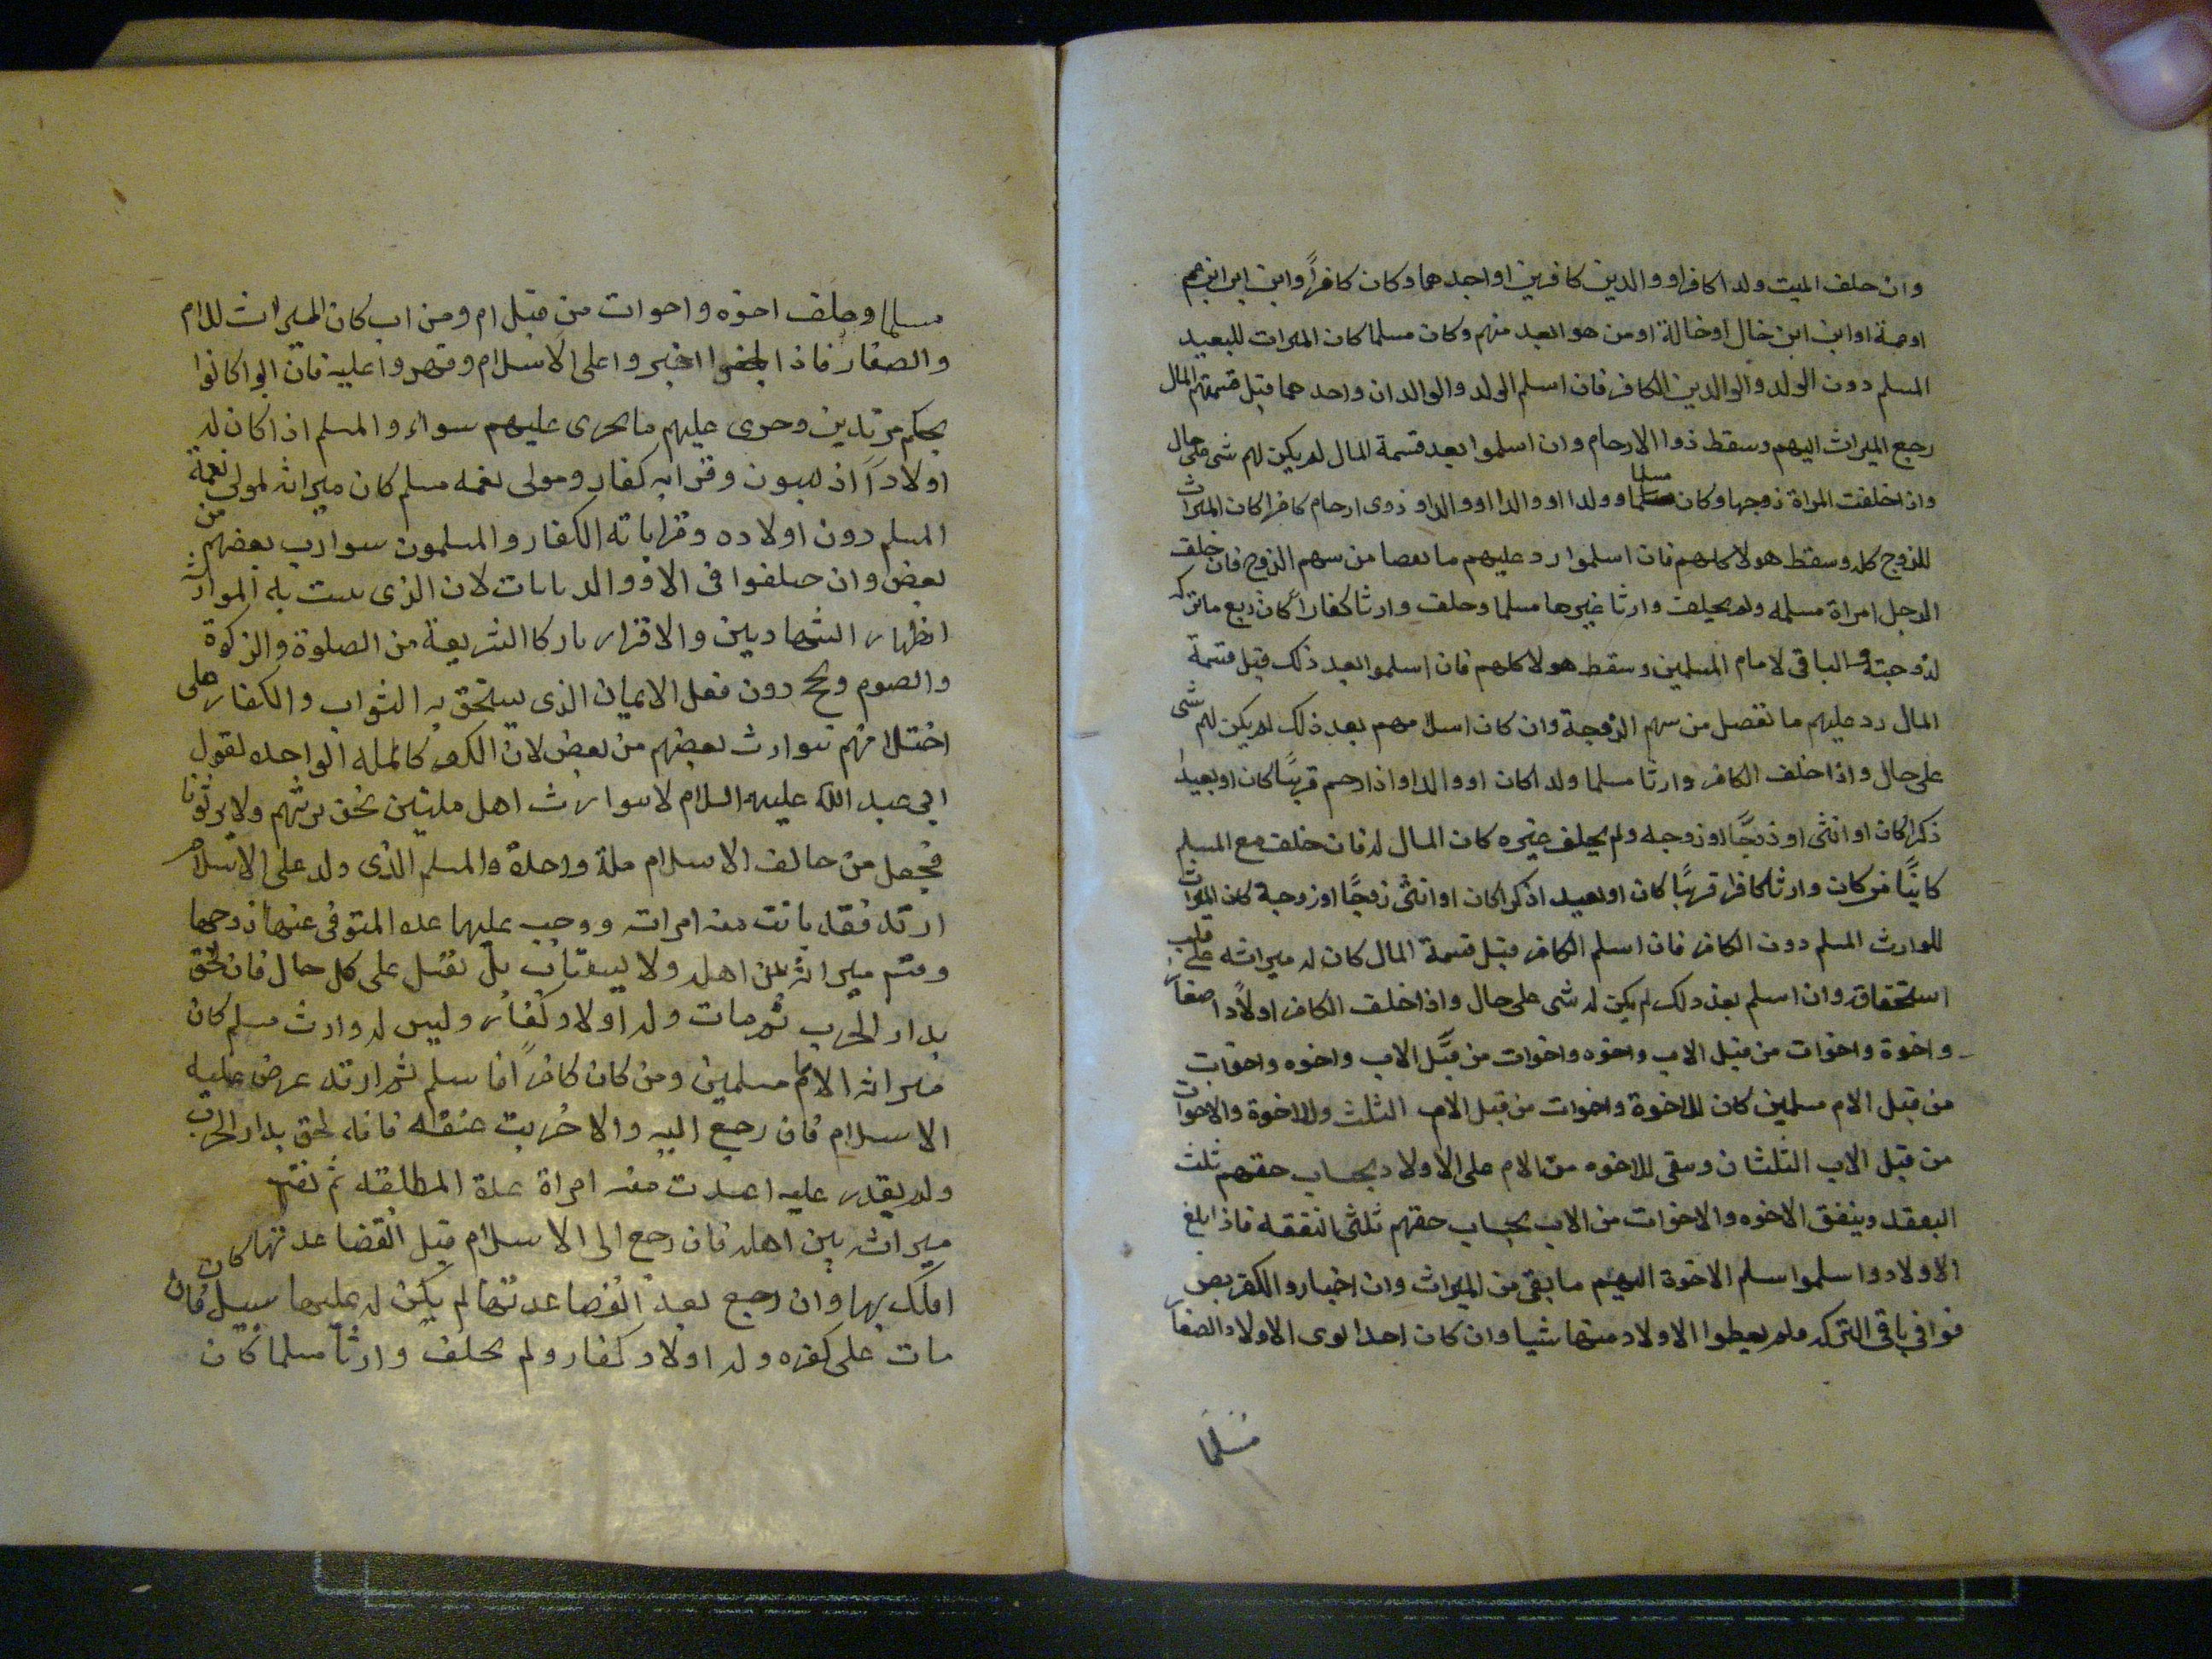 وان خلف الميت ولدا كافرا ووالدين كافرين او احدهما وكان كافرًا وابن ابن ابن عم
او عمة او ابن ابن خال او خالة او من هو ابعد منهم وكان مسلما كان الميراث للبعيد
المسلم دون الولد والوالدين الكافر فان اسلم الولد والوالدان واحدهما قبل قسمتهم المال
رجع الميراث اليهم وسقط ذوا الارحام وان اسلموا بعد قسمة المال لم يكن لهم شى على حال
واذا خلفت المراة زوجها وكان مسلما وولدا او والدا او والدا وذوى ارحام كافرا كان الميراث
للزوج كله وسقط هولا كلهم فان اسلموا رد عليهم ما بعضا من سهم الزوج فان خلف
الرجل امراة مسلمه ولم يخلف وارثا غيرها مسلما وخلف وارثا كفاراً كان ربع ما ترك
لزوجته والباقى لامام المسلمين وسقط هولا كلهم فان اسلموا بعد ذلك قبل قسمة
المال رد عليهم ما تفصل من سهم الزوجة وان كان اسلامهم بعد ذلك لم يكن لهم شى
على حال واذا خلف الكافر وارثا مسلما ولدا كان او والدا او ذا رحم قريبًا كان او بعيدا
ذكرا كان او انثى او زوجًا او زوجه ولم يخلف غيره كان المال له فان خلف مع المسلم
كاينًا من كان وارثا كافرا قريبًا كان او بعيدا ذكرا كان او انثى زوجًا او زوجة كان الميراث
للوارث المسلم دون الكافر فان اسلم الكافر قبل قسمة المال كان له ميراثه على قدر
استحقاقه وان اسلم بعد ذلك لم يكن له شى على حال واذا خلف الكافر اولادًا صغارا
واخوة واخوات من قبل الاب واخوه واخوات من قبَل الاب واخوه واخوات
من قبل الام مسلمين كان للاخوة واخوات من قبل الام الثلث وللاخوة والاخوات
من قبل الاب الثلثان وينفق للاخوه من الام على الاولاد بحساب حقهم ثلث
النفقه وينفق الاخوه والاخوات من الاب بحساب حقهم ثلثى النفقه فاذا بلغ
الاولاد واسلموا سلم الاخوة اليهم ما بقى من الميراث وان اختاروا الكفر تصر
فوا فى باقى التركه ولم يعطوا الاولاد منها شيا وان كان احد ابوى الاولاد الصغار
مسلما
مسلما وخلف اخوه واخوات من قبل ام ومن اب كان الميراث للام
والصغار فاذا بلغوا اجبروا على الاسلام وقهروا عليه فان ابوا كانوا
بحكم مرتدين وجرى عليهم ما يجرى عليهم سواء والمسلم اذا كان له
اولادًا ذميون وقرابه كفار ومولى نعمه مسلم كان ميراثه لمولى نعمة
المسلم دون اولاده وقراباته الكفار والمسلمون يتوارث بعضهم من
بعض وان اختلفوا فى الاراء والديانات لان الذى يثبت به الموارثه
اظهار الشهادتين والاقرار باركان الشريعة من الصلوة والزكوة
والصوم والحج دون فعل الايمان الذى يستحق به الثواب والكفار على
اختلافهم يتوارث بعضهم من بعض لان الكفر كالمله الواحده لقول
ابى عبد الله عليه السلام لا يتوارث اهل ملتين نحن نرثهم ولا يرثونا
فجعل من خالف الاسلام ملة واحدة والمسلم الذى ولد على الاسلام
ارتد فقد بانت منه امراته ووجب عليها عده المتوفى عنها زوجها
وقسم ميراثه بين اهله ولا يستتاب بل يقتل على كل حال فان لحق
بدار الحرب ثم مات وله اولاد كفار وليس له وارث مسلم كان
ميراثه الامام مسلمين ومن كان كافرًا فاسلم ثم ارتد عرض عليه
الاسلام فان رجع اليه والا ضربت عنقه فانه لحق بدار الحرب
ولم يقدر عليه اعتدت منه امراة عدة المطلقه ثم نقسم
ميراثه بين اهله فان رجع الى الاسلام قبل انقضا عدتها كان
املك بها وان رجع بعد انقضا عدتها لم يكن له عليها سبيل فان
مات على كفره وله اولاد كفار ولم يخلف وارثا مسلما كان